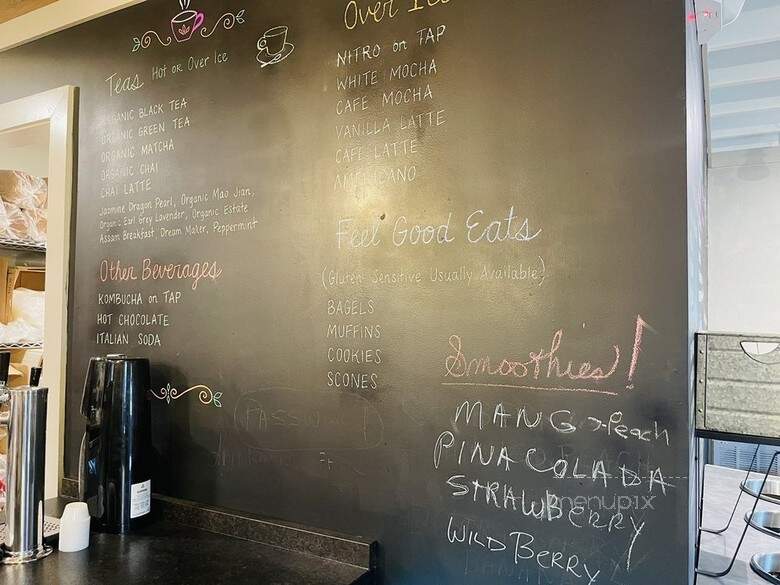 Teas Hot or Over Ice
ORGANIC BLACK TEA
ORGANIC GREEN TEA
ORGANIC MATCHA
ORGANIC CHAI
CHAI LATTE
Jasmine Dragon Pearl, Organic Mao Jian,
Organic Earl Grey Lavender, Organic Estate
Assam Breakfast, Dream Maker, Peppermint
Other Beverages
KOMBUCHA on TAP
HOT CHOCOLATE
ITALIAN SODA
PASSW
Over Ice
NITRO on TAP
WHITE MOCHA
CAFE MOCHA
VANILLA LATTE
CAFE LATTE
AMERICANO
Feel Good Eats
(Gluten Sensitive Usually Available)
BAGELS
MUFFINS
COOKIES
SCONES
Smoothies!
MANGO-Peach
PINA COLADA
STRAWBERRY
WILD BERRY
menupix